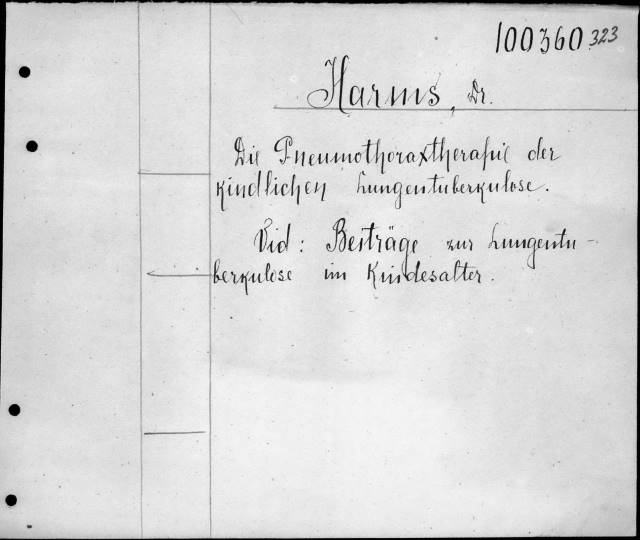 100360 323
Harms, Dr.
Die Pneumothoraxtherapie der
kindlichen Lungentuberkulose.
Vid: Beiträge zur Lungentu-
berkulose im Kindesalter.